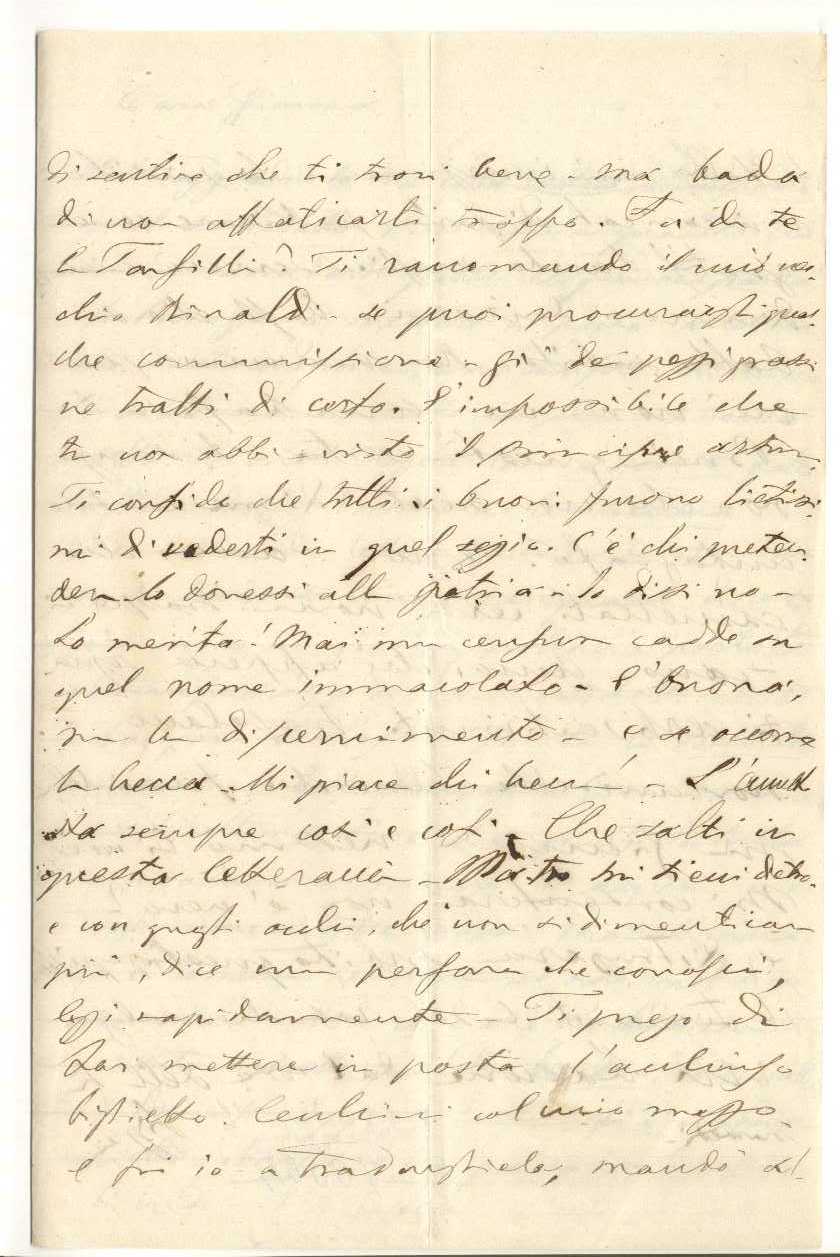 di sentire che ti trovi bene - ma bada
di non affaticarti troppo. Fu da te
la Tanfilli? Ti raccomando il mio vec-
chio Rinaldi - se puoi procurargli qual-
che commissione - gi de' pezzi grossi
ne tratti di certo. È impossibile che
tu non abbi visto il principe
Ti confido che tutti i buoni furono lietissi-
mi di vederti in quel seggio. C'è chi preten-
deva lo dovessi alla patria - io dissi no -
Lo merita! Mai una censura cadde su
quel nome immacolato - È buona,
ma ha discernimento - e se occorre
la becca - Mi piace chi becca! -
sta sempre così e così - Che salti in
questa letteraccia - Ma tu mi tieni dietro -
e con quegli occhi, che non si dimenticano
più, dice una persona che conosci,
leggi rapidamente - Ti prego di
far mettere in posta l'accluso
biglietto. col mio mezzo
e fui io a mandò al-